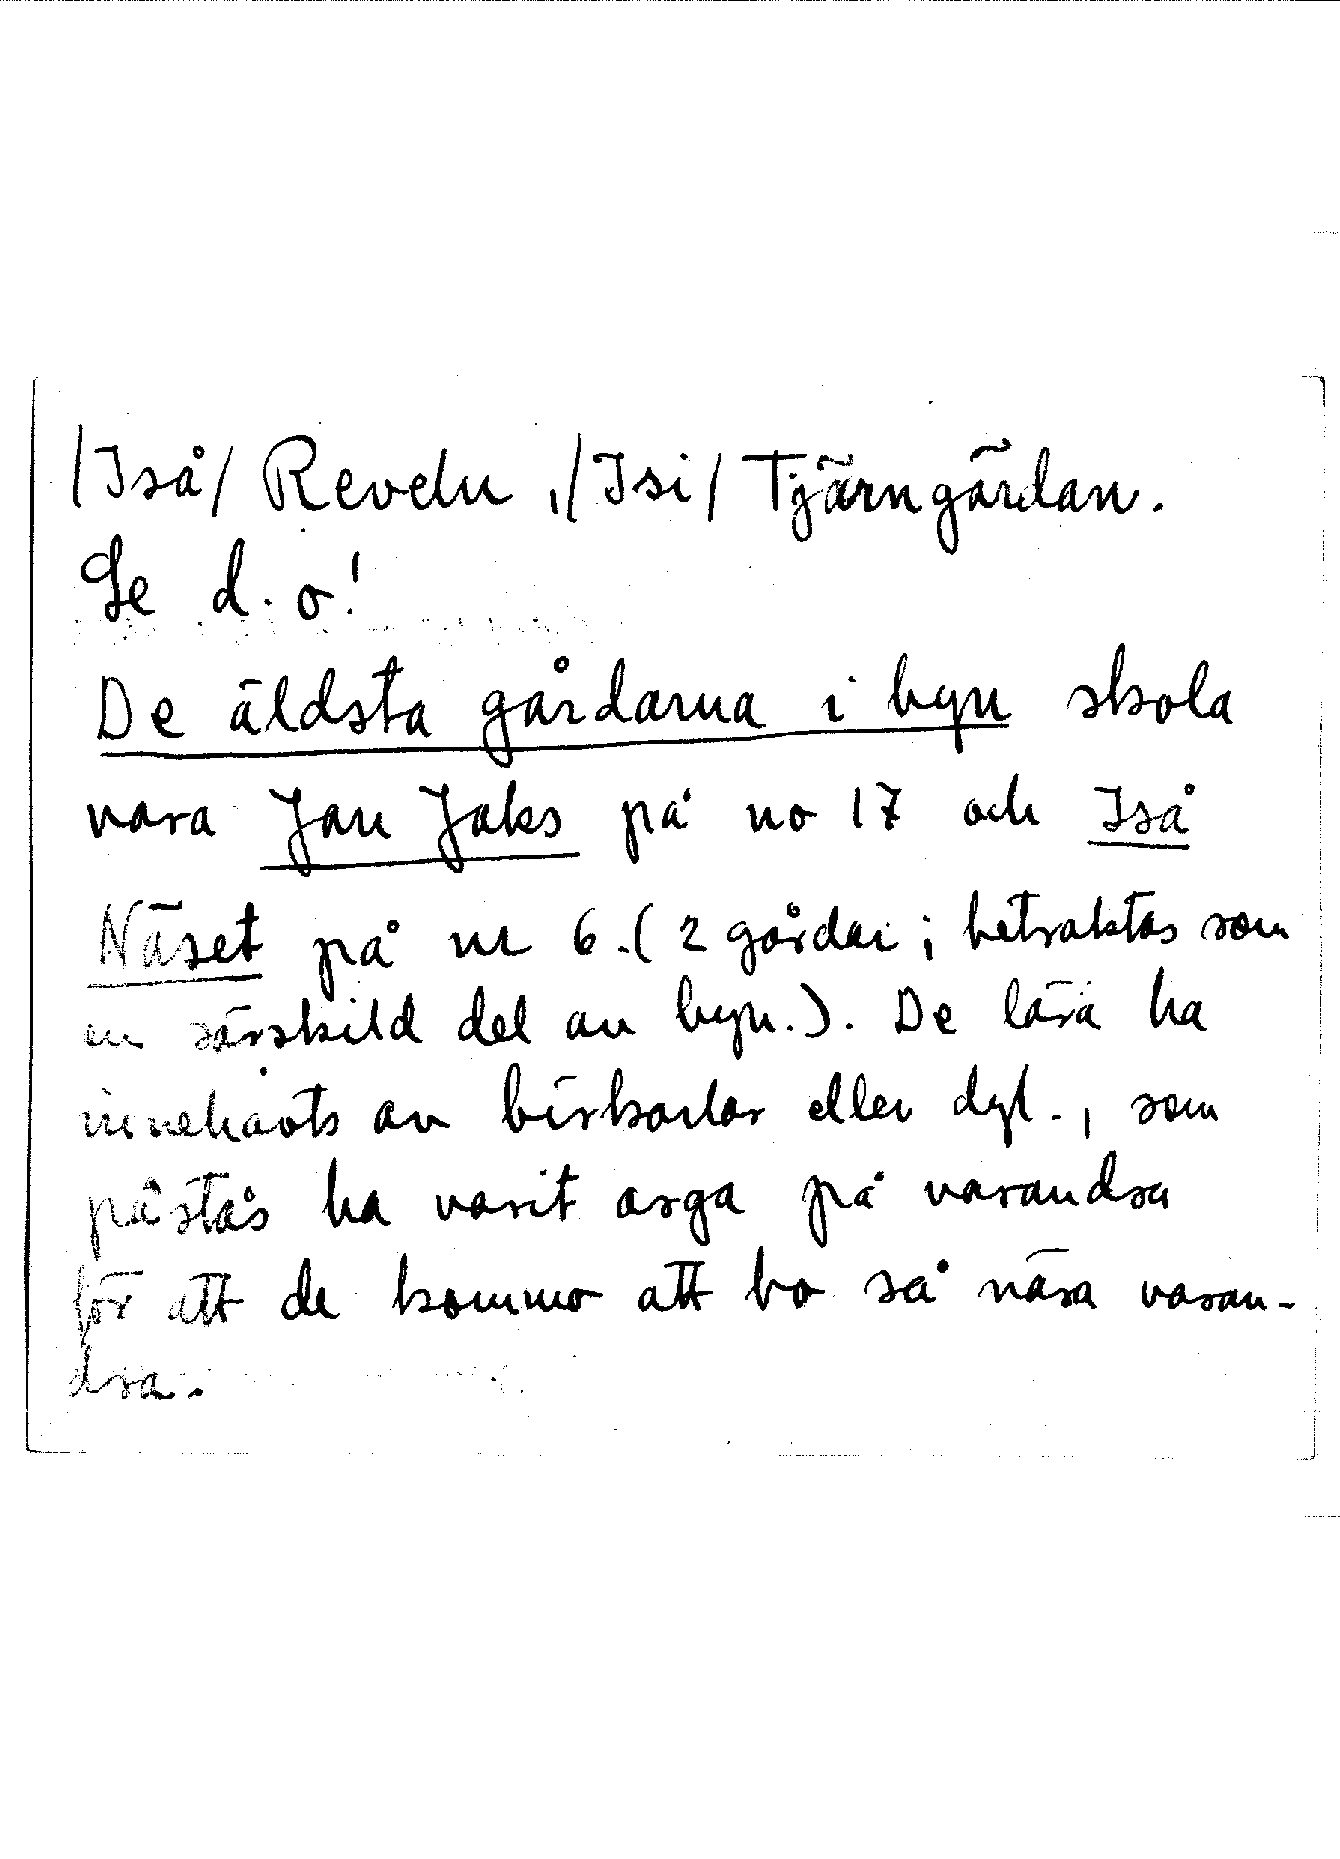 /Iså/ Reveln, /Isi/ Tjärngårdan.
Se d.o!
De äldsta gårdarna i byn skola
vara Jan Jaks på no 17 och Iså
Näset på nr 6. (2 gårdar; betraktas som
en särskild del av byn.). De lära ha
innehavts av birkarlar eller dyl., som
påstås ha varit arga på varandra
för att de kommo att bo så nära varan-
dra.